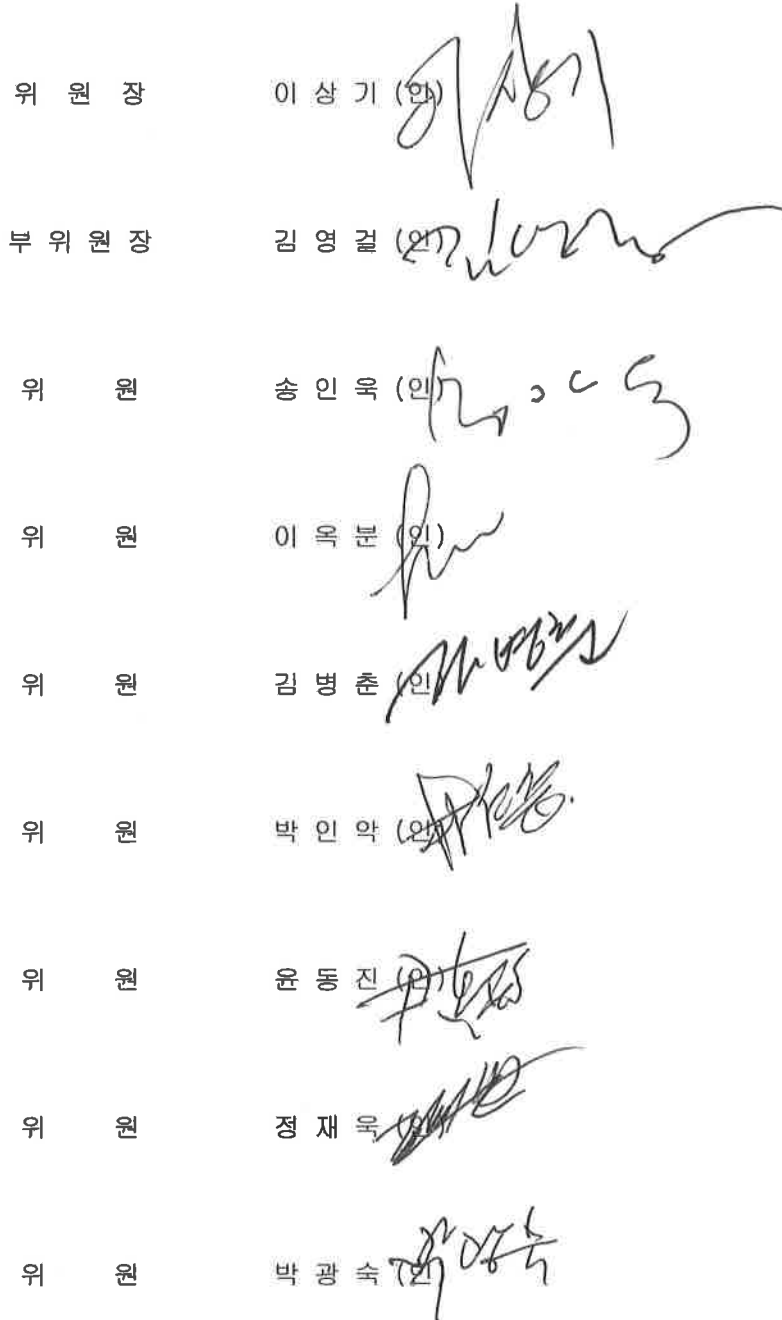 위 원 장 이 상 기 (인)
부 위 원 장 김 영 걸 (인)
위 원 송 인 욱 (인)
위 원 이 옥 분 (인)
위 원 김 병 춘 (인)
위 원 박 인 악 (인)
위 원 윤 동 진 (인)
위 원 정 재 욱 (인)
위 원 박 광 숙 (인)